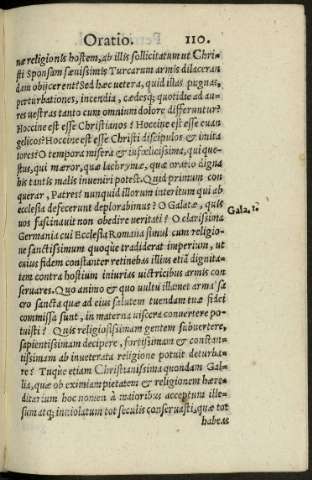 Oratio. 110.
næ religionis hostem, ab illis sollicitatum ut Chri-
sti Sponsam sæuissimis Turcarum armis dilaceran
dam obijcerent? Sed hæc uetera, quid illas pugnas,
perturbationes, incendia, cædesq; quotidie ad au-
res uestras tanto cum omnium dolore differuntur?
Hoccine est esse Christianos? Hoccine est esse euan
gelicos? Hoccine est esse Christi discipulos & imita
tores? O tempora misera & infœlicissima, qui que-
stus, qui mæror, quæ lachrymæ, quæ oratio digna
his tantis malis inueniri potest. Quid primum con
querar, Patres? nunquid illorum interitum qui ab
ecclesia defecerunt deplorabimus? O Galatæ, quis
uos fascinauit non obedire ueritati? O clarissima
Gala. 1.
Germania cui Ecclesia Romana simul cum religio-
ne sanctissimum quoque tradiderat imperium, ut
eius fidem constanter retinebas illius etiã dignita-
tem contra hostium iniurias uictricibus armis con
seruares. Quo animo & quo uultu illæ̃c armã sa
cro sancta quæ ad eius salutem tuendam tuæ fidei
commissa sunt, in materna uiscera conuertere po-
tuisti? Quis religiosissimam gentem subuertere,
sapientissimam decipere, fortissimam & constan-
tissimam ab inueterata religione potuit deturba-
re? Tuq́ue etiam Christianissima quondam Gal-
lia, quæ ob eximiam pietatem & religionem hære-
ditarium hoc nomen à maioribus acceptum ille-
sum atq; inuiolatum tot seculis conseruasti, quæ tot
habeas